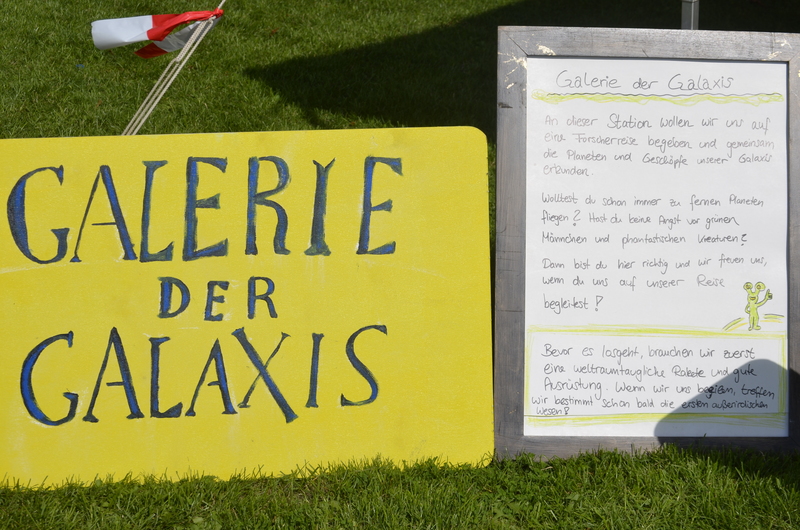 GALERIE
DER
GALAXIS
Galerie der Galaxis
An dieser Station wollen wir uns auf
eine Forscherreise begeben und gemeinsam
die Planeten und Geschöpfe unserer Galaxis
erkunden.
Wolltest du schon immer zu fernen Planeten
fliegen? Hast du keine Angst vor grünen
Männchen und phantastischen Kreaturen?
Dann bist du hier richtig und wir freuen uns,
wenn du uns auf unserer Reise
begleitest!
Bevor es losgeht, brauchen wir zuerst
eine weltraumtaugliche Rakete und gute
Ausrüstung. Wenn wir uns beeilen, treffen
wir bestimmt schon bald die ersten außerirdischen
Wesen!